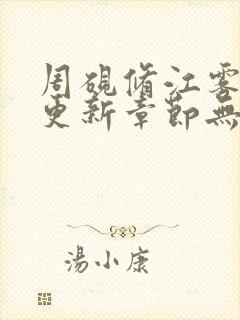 周硯脩江雾
更新章節無
湯小康